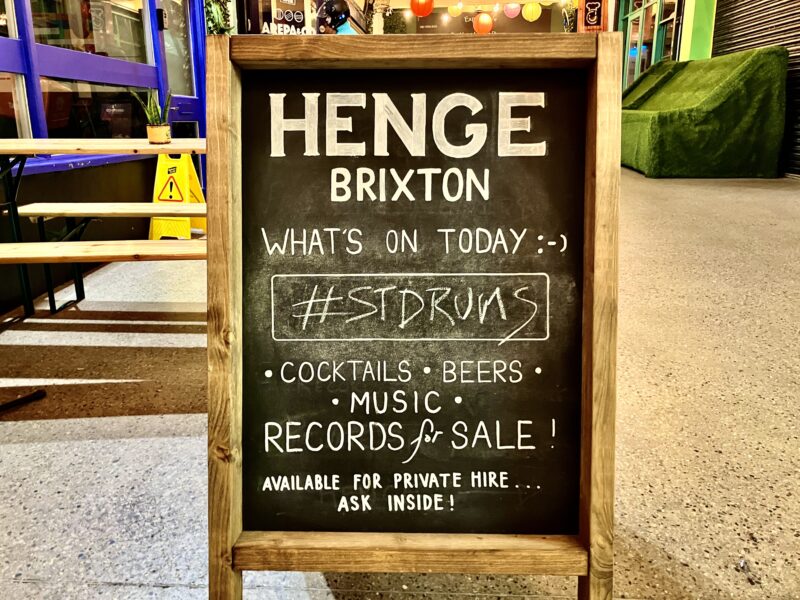 HENGE
BRIXTON
WHAT'S ON TODAY :-)
#STDRUMS
• COCKTAILS • BEERS •
• MUSIC •
RECORDS for SALE !
AVAILABLE FOR PRIVATE HIRE...
ASK INSIDE!